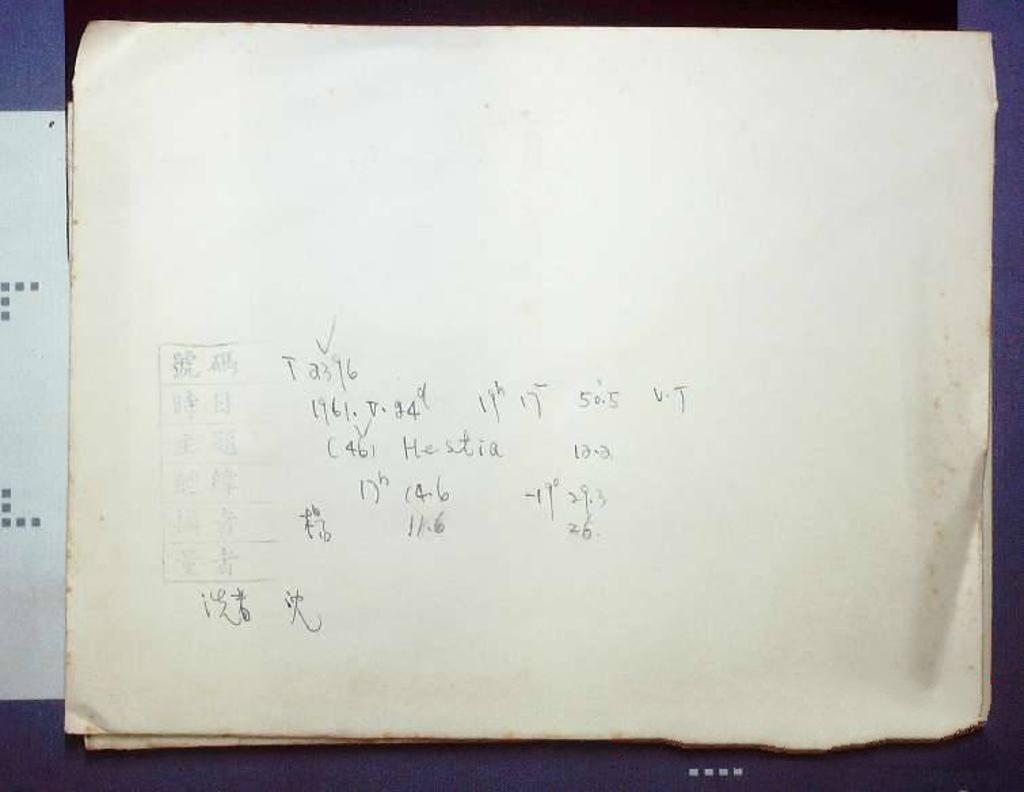 號碼 T 2396
時日 1961. V. 24ᵈ 19ʰ 17ᵐ 50ˢ.5 U.T
主題 (46) Hestia 12.2
經緯 17ʰ 14.6 -19° 29.3
攝者 楊 11.6 26.
量者
洗者 沈